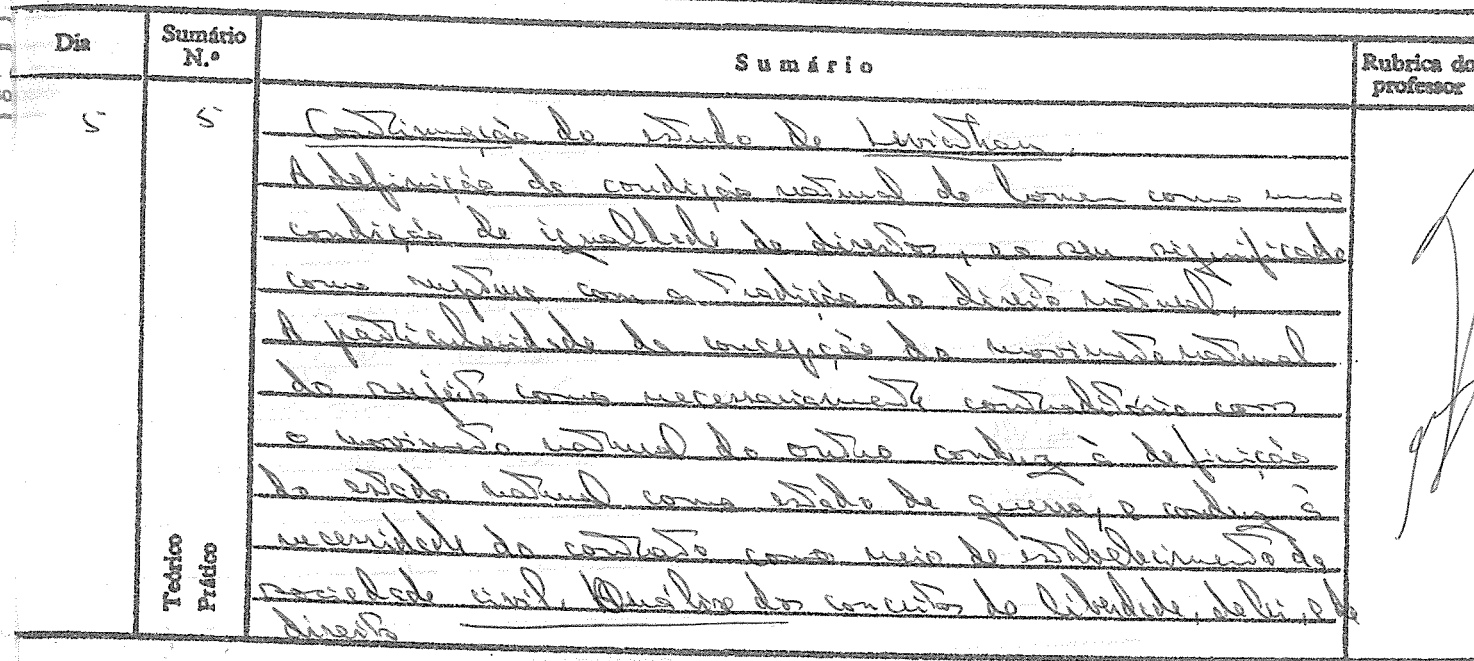 Dia
Sumário N.º
Sumário
Rubrica do professor
5
5
Continuação do estudo de Leviathan.
A definição da condição natural do homem como uma
condição de igualdade de direitos, e o seu significado
como ruptura com a tradição do direito natural.
A particularidade da concepção do movimento natural
do sujeito como necessariamente contraditório com
o movimento natural do outro conduz à definição
do estado natural como estado de guerra, e conduz à
necessidade do contrato como meio de estabelecimento da
sociedade civil. Análise dos conceitos de liberdade, de lei, e de
direito
Teórico
Prático